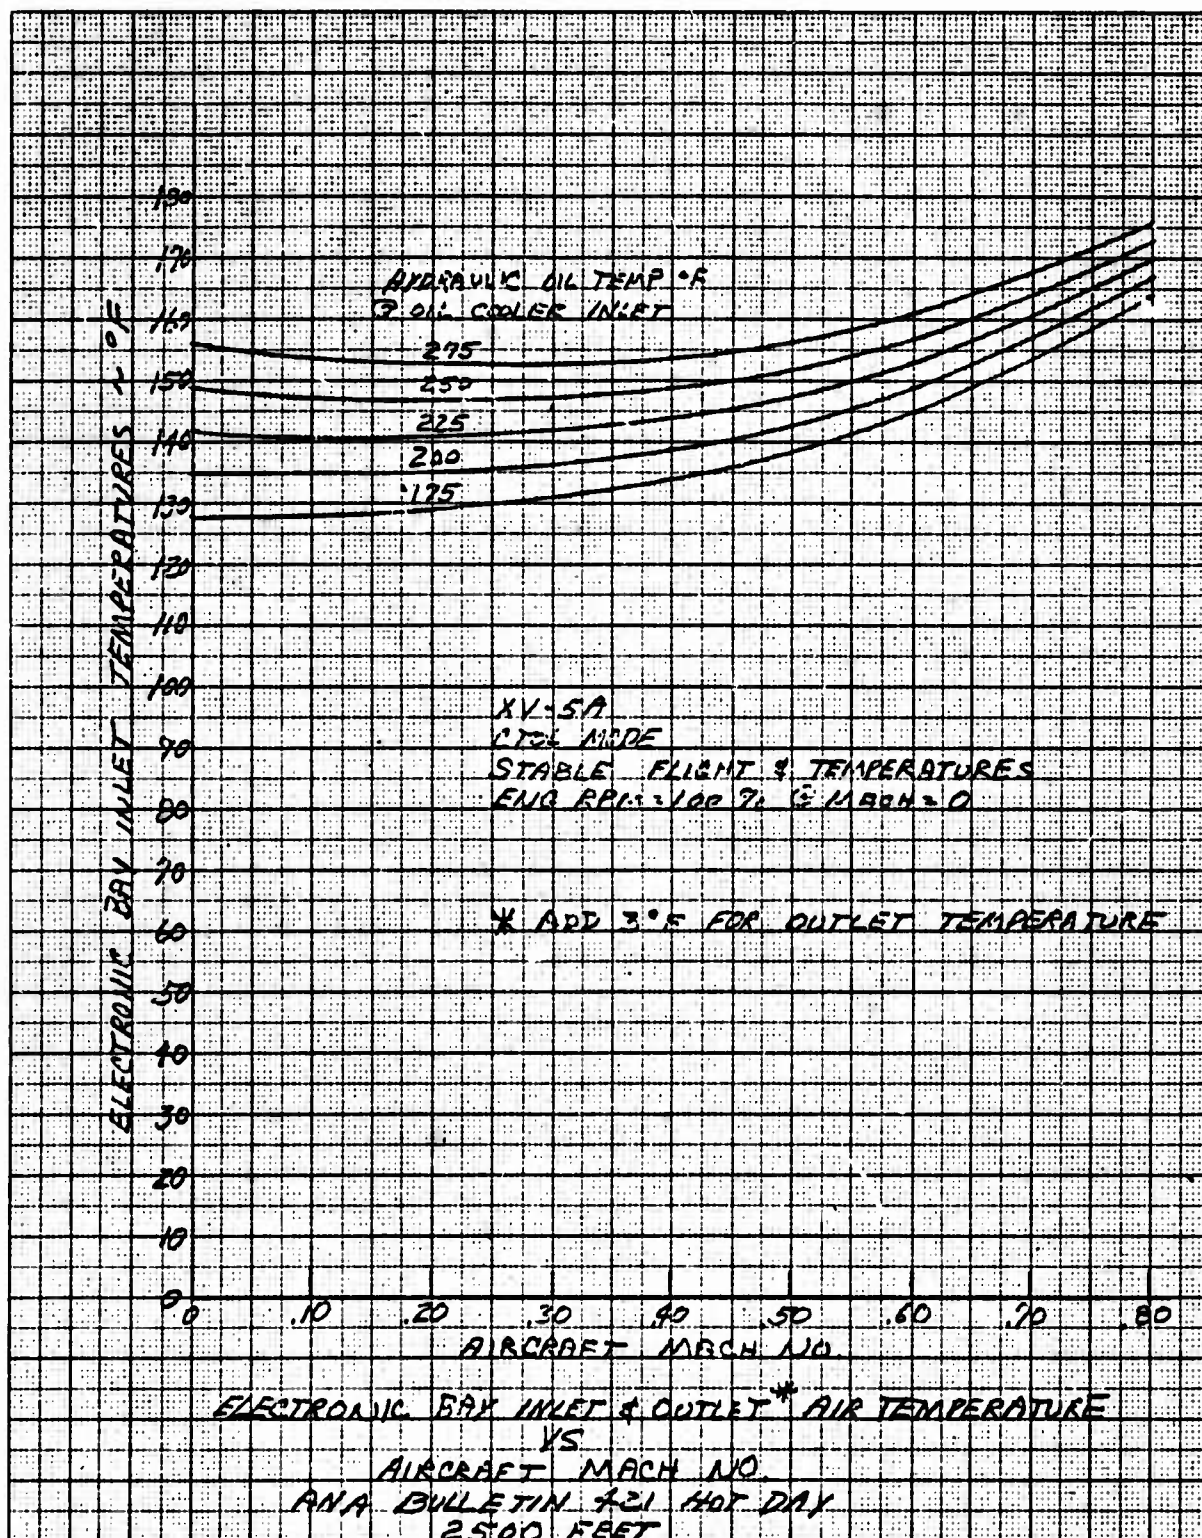 180
170
160
150
140
130
120
110
100
90
80
70
60
50
40
30
20
10
0
ELECTRONIC BAY INLET TEMPERATURES ~ °F
HYDRAULIC OIL TEMP °F
@ OIL COOLER INLET
275
250
225
200
175
XV-5A
CTOL MODE
STABLE FLIGHT & TEMPERATURES
ENG RPM = 100 % @ MACH = 0
* ADD 3°F FOR OUTLET TEMPERATURE
0 .10 .20 .30 .40 .50 .60 .70 .80
AIRCRAFT MACH NO.
ELECTRONIC BAY INLET & OUTLET * AIR TEMPERATURE
VS
AIRCRAFT MACH NO.
ANA BULLETIN 421 HOT DAY
2500 FEET